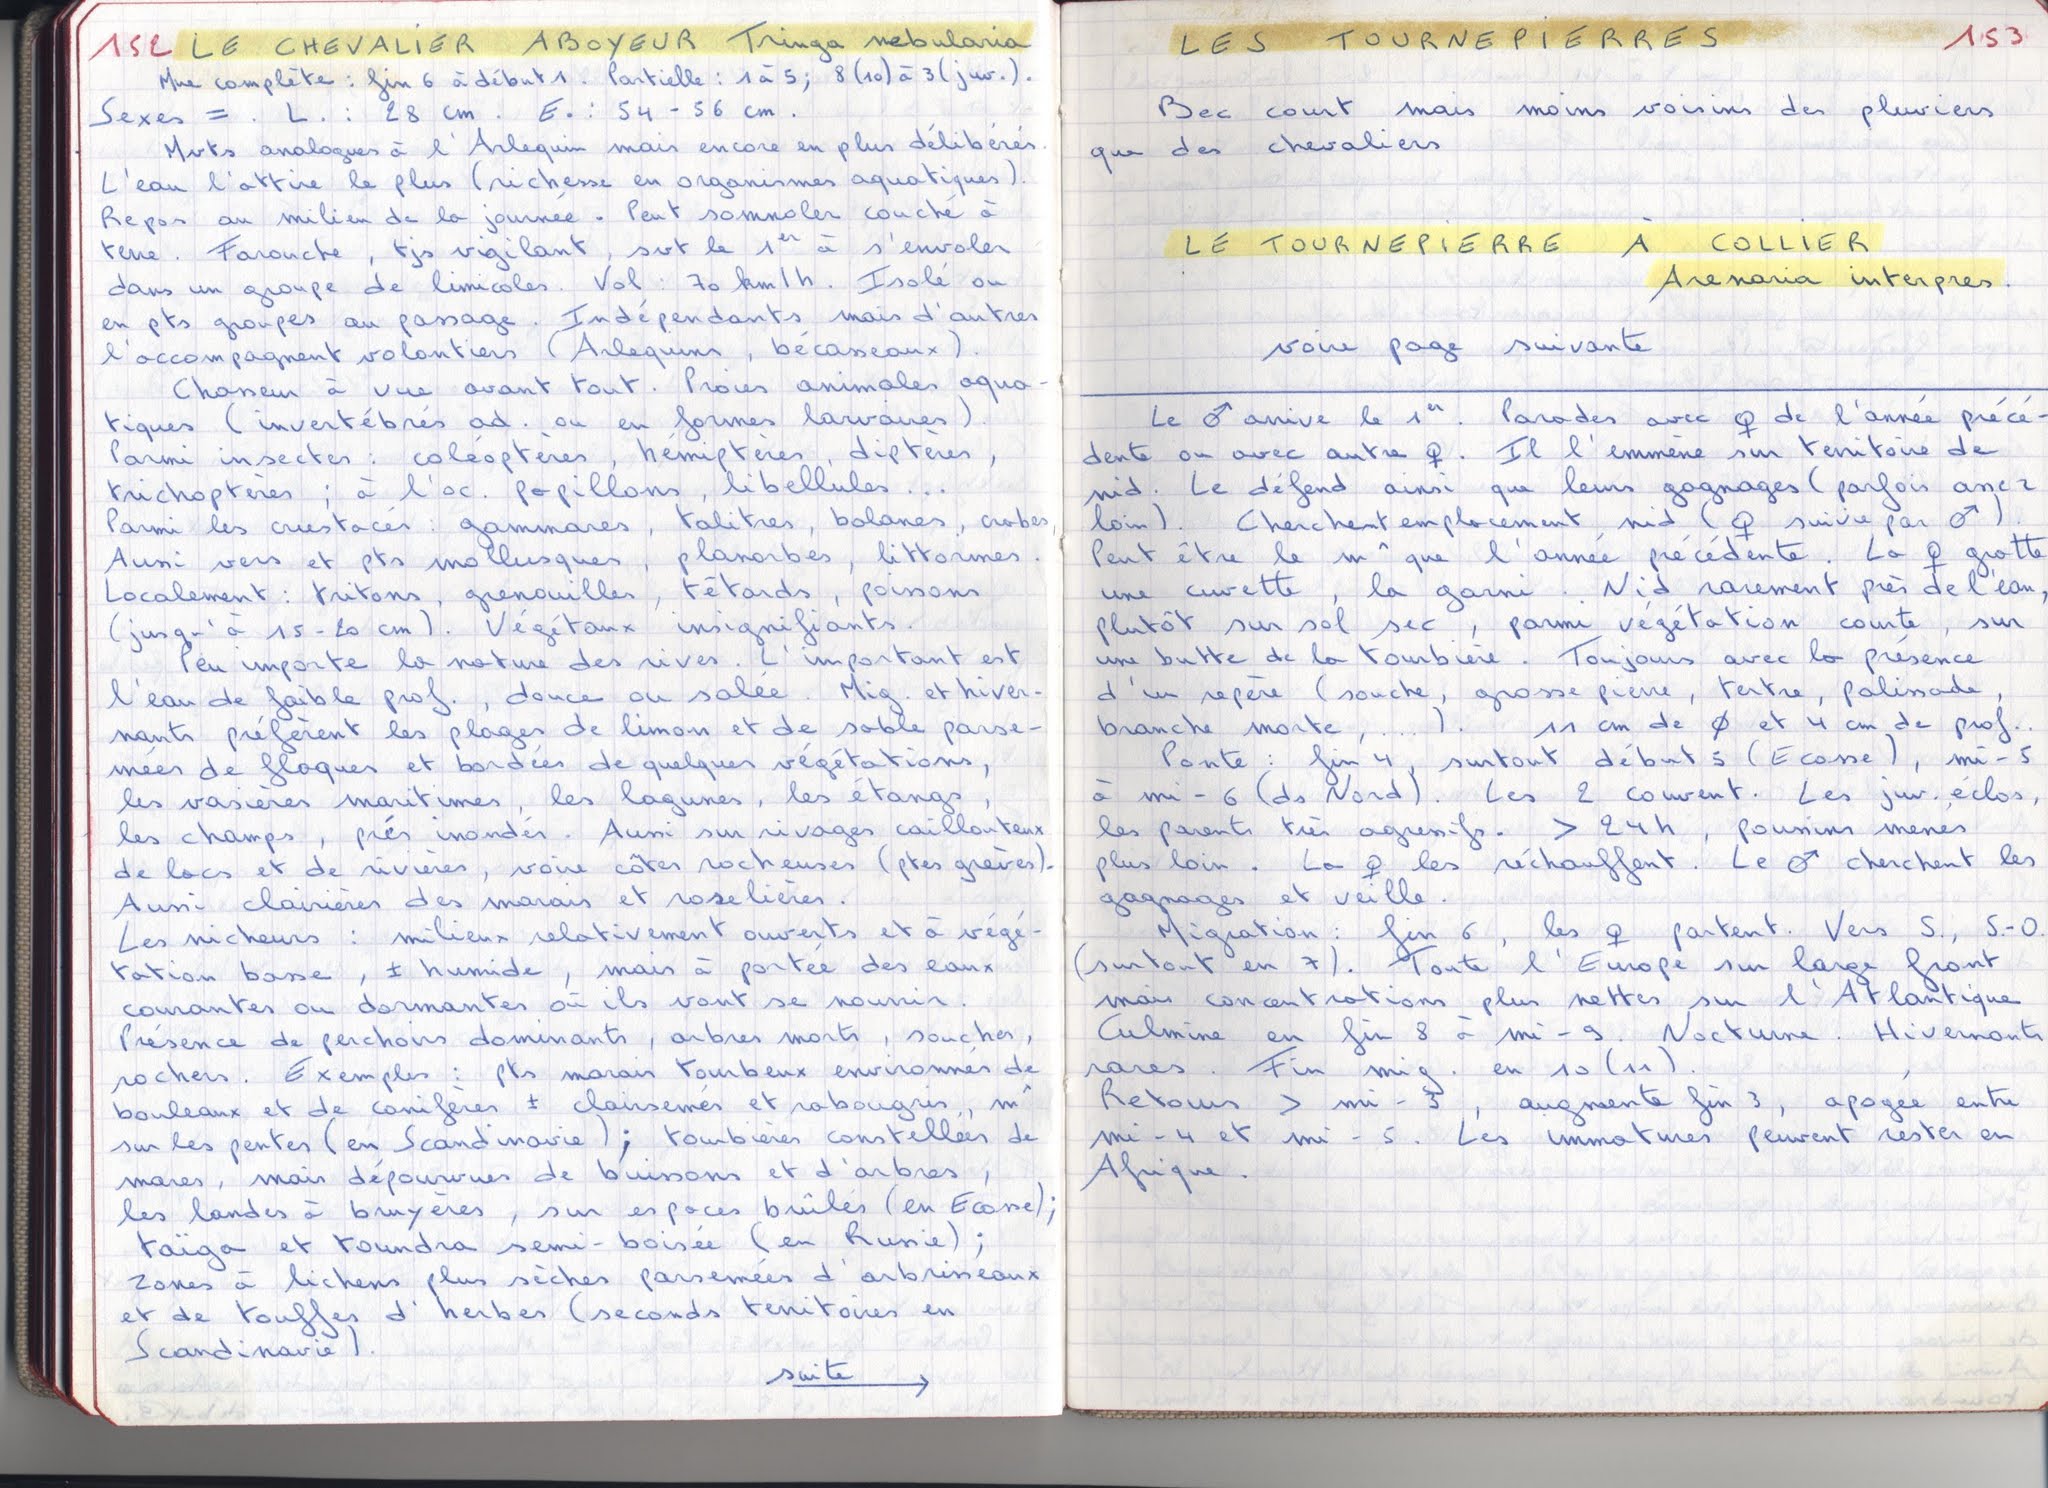 152 LE CHEVALIER ABOYEUR Tringa nebularia
Mue complète : fin 6 à début 1. Partielle : 1 à 5 ; 8 (10) à 3 (juv.).
Sexes = . L. : 28 cm. E. : 54 - 56 cm.
Mvts analogues à l'Arlequin mais encore en plus délibérés.
L'eau l'attire le plus (richesse en organismes aquatiques).
Repos au milieu de la journée. Peut somnoler couché à
terre. Farouche, tjs vigilant, svt le 1er à s'envoler
dans un groupe de limicoles. Vol : 70 km/h. Isolé ou
en pts groupes au passage. Indépendants mais d'autres
l'accompagnent volontiers (Arlequins, bécasseaux).
Chasseur à vue avant tout. Proies animales aqua-
tiques (invertébrés ad. ou en formes larvaires).
Parmi insectes : coléoptères, hémiptères, diptères,
trichoptères ; à l'oc. papillons, libellules...
Parmi les crustacés : gammares, talitres, balanes, crabes,
Aussi vers et pts mollusques, planorbes, littorines.
Localement : tritons, grenouilles, têtards, poissons
(jusqu'à 15-20 cm). Végétaux insignifiants.
Peu importe la nature des rives. L'important est
l'eau de faible prof., douce ou salée. Mig. et hiver-
nants préfèrent les plages de limon et de sable parse-
mées de flaques et bordées de quelques végétations,
les vasières maritimes, les lagunes, les étangs,
les champs, prés inondés. Aussi sur rivages caillouteux
de lacs et de rivières, voire côtes rocheuses (ptes grèves).
Aussi clairières des marais et roselières.
Les nicheurs : milieux relativement ouverts et à végé-
tation basse, ± humide, mais à portée des eaux
courantes ou dormantes où ils vont se nourrir.
Présence de perchoirs dominants, arbres morts, souches,
rochers. Exemples : pts marais tourbeux environnés de
bouleaux et de conifères ± clairsemés et rabougris, m^
sur les pentes (en Scandinavie) ; tourbières constellées de
mares, mais dépourvues de buissons et d'arbres,
les landes à bruyères, sur espaces brûlés (en Ecosse) ;
taïga et toundra semi-boisée (en Russie) ;
zones à lichens plus sèches parsemées d'arbrisseaux
et de touffes d'herbes (seconds territoires en
Scandinavie).
suite →
LES TOURNEPIERRES 153
Bec court mais moins voisins des pluviers
que des chevaliers
LE TOURNEPIERRE À COLLIER
Arenaria interpres.
voire page suivante
Le ♂ arrive le 1er. Parades avec ♀ de l'année précé-
dente ou avec autre ♀. Il l'emmène sur territoire de
nid. Le défend ainsi que leurs gagnages (parfois assez
loin). Cherchent emplacement nid (♀ suivie par ♂).
Peut être le m^ que l'année précédente. La ♀ gratte
une cuvette, la garni. Nid rarement près de l'eau,
plutôt sur sol sec, parmi végétation courte, sur
une butte de la tourbière. Toujours avec la présence
d'un repère (souche, grosse pierre, tertre, palissade,
branche morte, ...). 11 cm de ø et 4 cm de prof..
Ponte : fin 4, surtout début 5 (Ecosse), mi-5
à mi-6 (ds Nord). Les 2 couvent. Les juv. éclos,
les parents très agressifs. > 24h, poussins menés
plus loin. La ♀ les réchauffent. Le ♂ cherchent les
gagnages et veille.
Migration : fin 6, les ♀ partent. Vers S., S.-O.
(surtout en 7). Toute l'Europe sur large front
mais concentrations plus nettes sur l'Atlantique
Culmine en fin 8 à mi-9. Nocturne. Hivernants
rares. Fin mig. en 10 (11).
Retours > mi-3, augmente fin 3, apogée entre
mi-4 et mi-5. Les immatures peuvent rester en
Afrique.